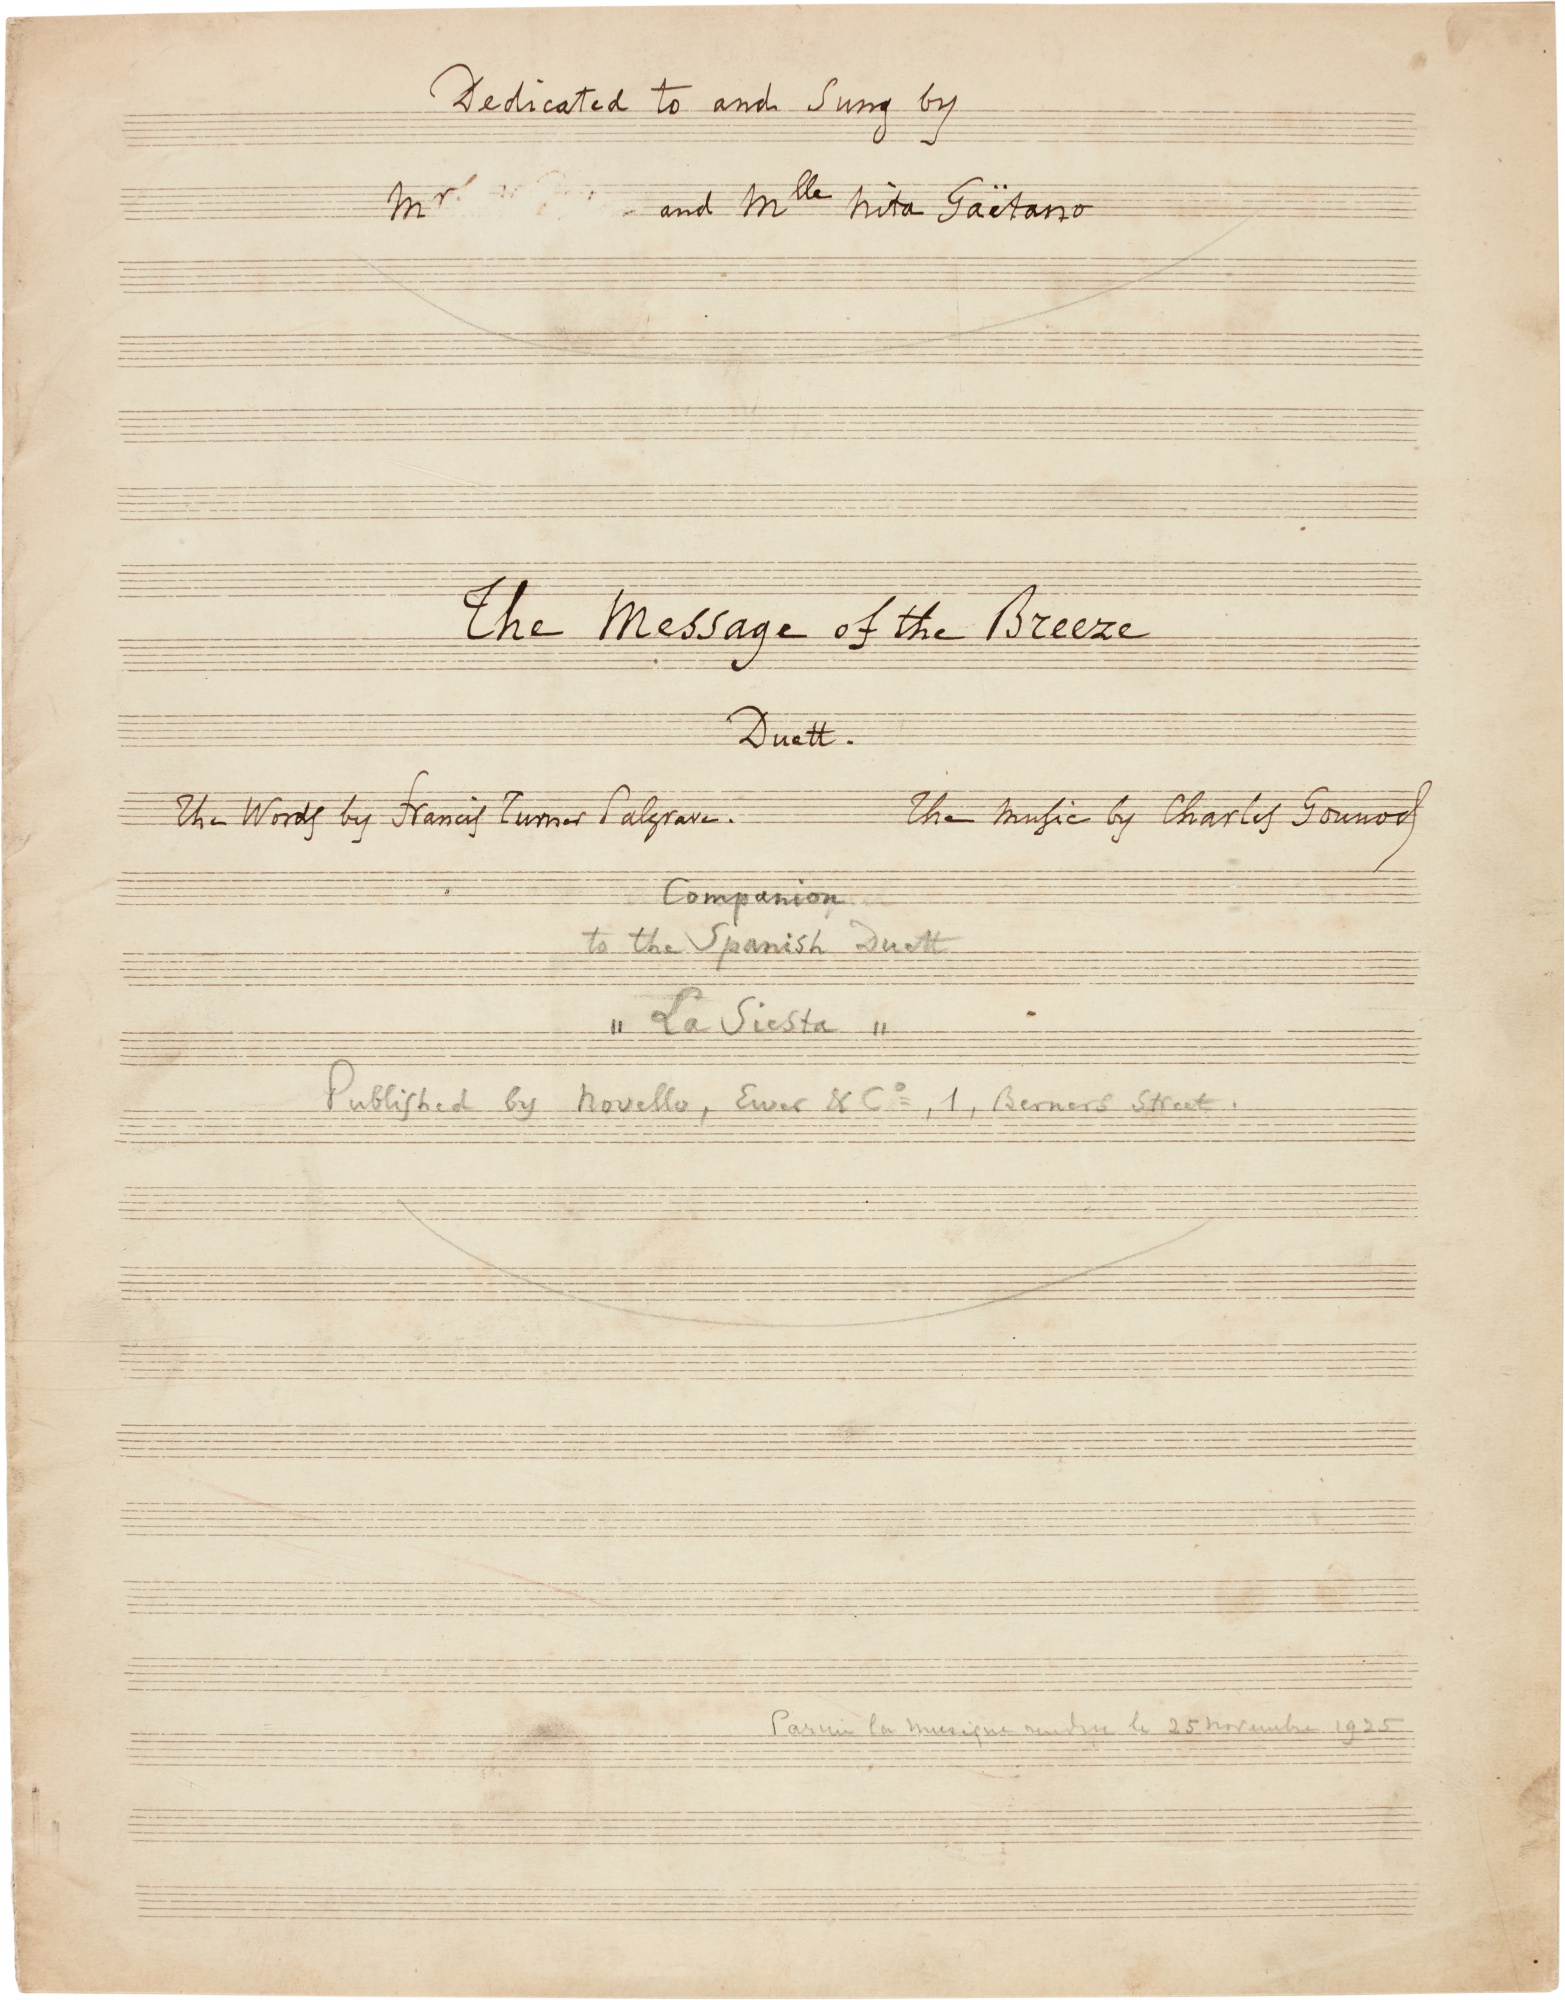 Dedicated to and Sung by
Mrs and Mlle Nita Gaëtano
The Message of the Breeze
Duett.
The Words by Francis Turner Palgrave. The Music by Charles Gounod
Companion
to the Spanish Duett
" La Siesta "
Published by Novello, Ewer & Co, 1, Berners Street.
Parmi la musique rendue le 25 novembre 1925